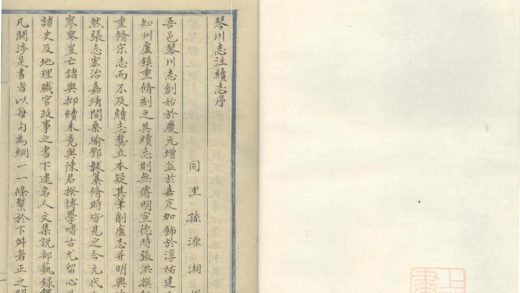 琴川志注續志序
同里孫源湘
吾邑琴川志創始於慶元增益於嘉定加飾於淳祐建
知州盧鎮重脩刻之其續志則無傳明宣德時張洪撰
重脩宋志而不及續志龔立本疑其筆削盧志并明興
然張志宏治嘉靖間桑瑜鄧韍纂脩時皆見之今元代
寥寥豈亡諸與抑續未竟與陳君揆博學嗜古尤留心
諸史及地理職官故事之書下逮名人文集說部藝録
凡關涉是書者以每句為綱一一條繫於下舛者正之